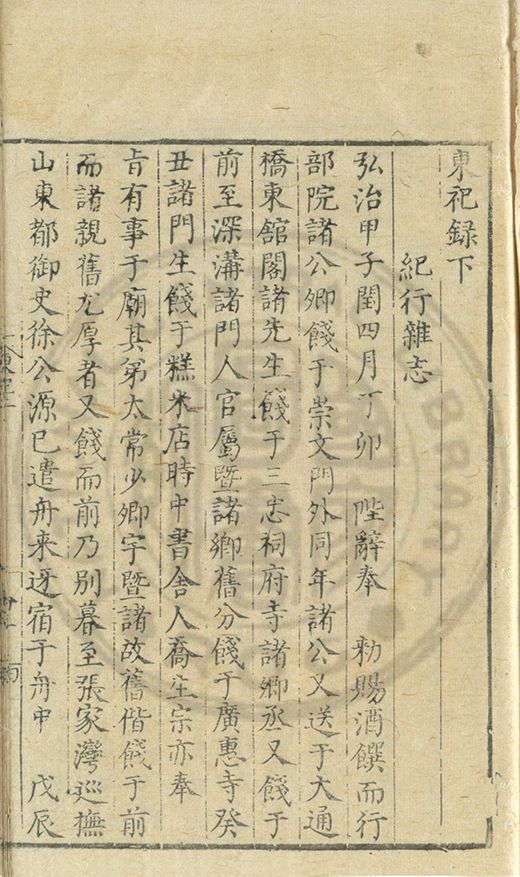 東祀録下
紀行雜志
弘治甲子閏四月丁卯 陛辭奉 勑賜酒饌而行
部院諸公卿餞于崇文門外同年諸公又送于大通
橋東舘閣諸先生餞于三忠祠府寺諸卿丞又餞于
前至深溝諸門人官屬暨諸鄉舊分餞于廣惠寺癸
丑諸門生餞于糕米店時中書舍人喬生宗亦奉
㫖有事于廟其弟太常少卿宇暨諸故舊偕餞于前
而諸親舊尤厚者又餞而前乃别暮至張家灣巡撫
山東都御史徐公源已遣舟来迓宿于舟中 戊辰